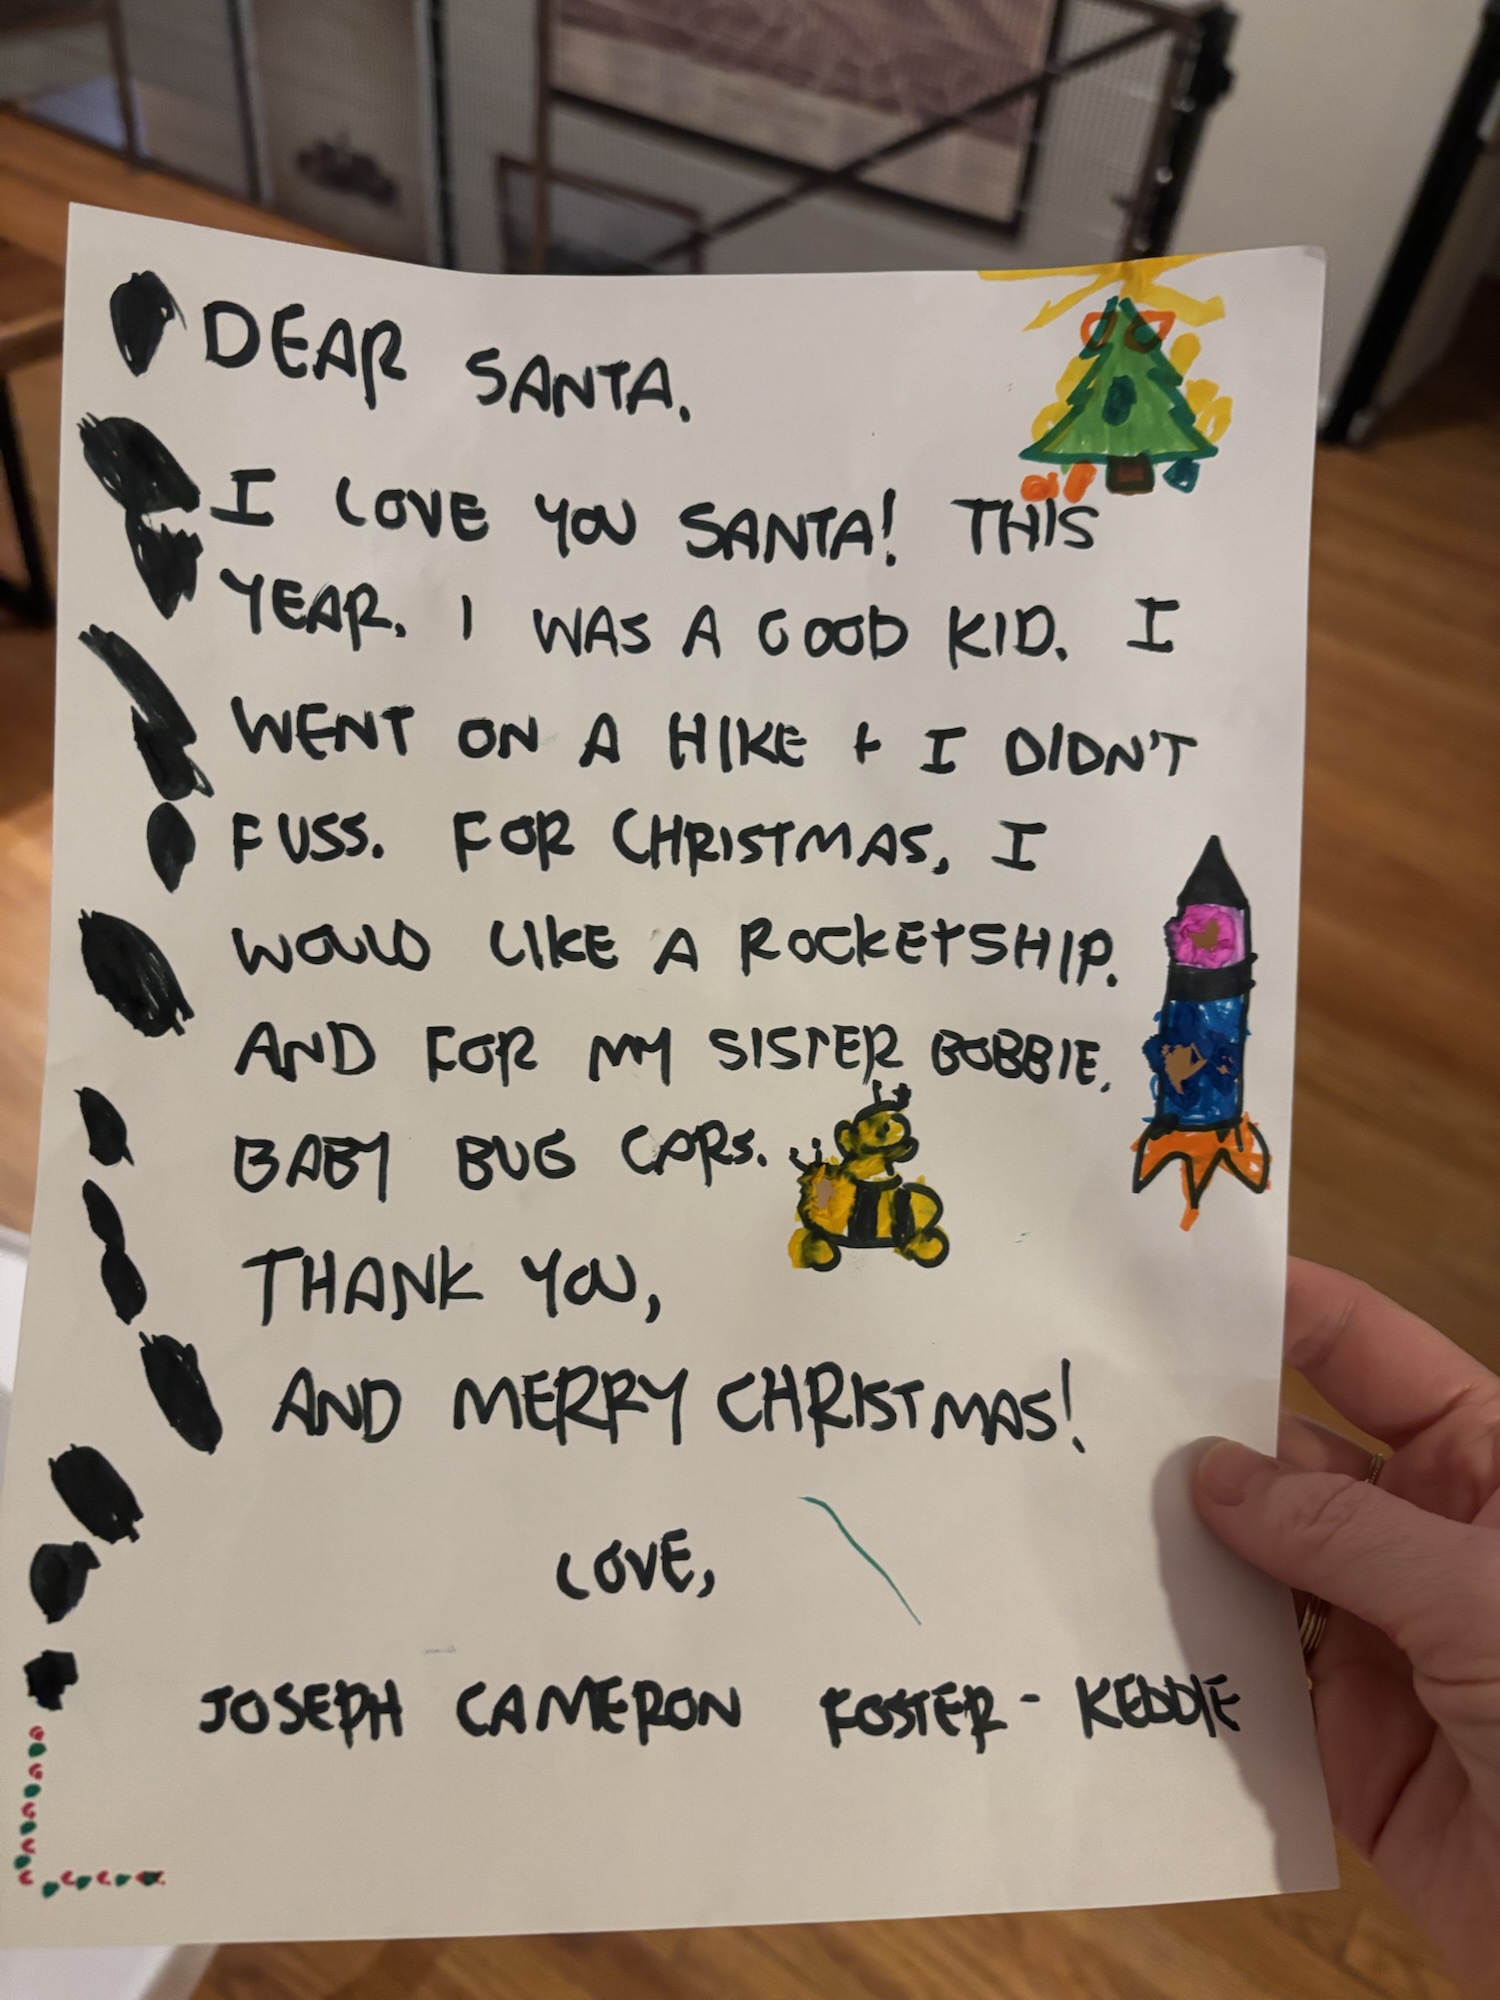 DEAR SANTA.
I LOVE YOU SANTA! THIS
YEAR, I WAS A GOOD KID. I
WENT ON A HIKE + I DIDN'T
FUSS. FOR CHRISTMAS, I
WOULD LIKE A ROCKETSHIP.
AND FOR MY SISTER BOBBIE,
BABY BUG CARS.
THANK YOU,
AND MERRY CHRISTMAS!
LOVE,
JOSEPH CAMERON FOSTER-KEDDIE